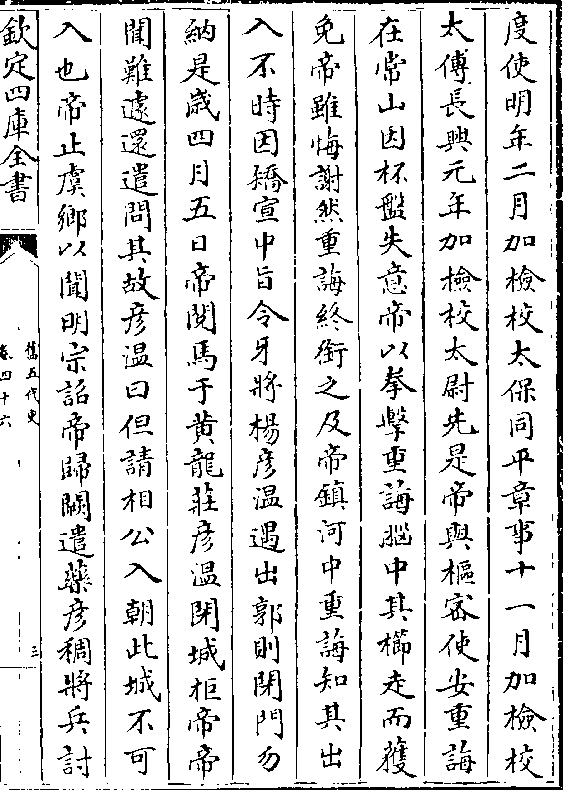 度使明年二月加檢校太保同平章事十一月加檢校
太傅長興元年加檢校太尉先是帝與樞密使安重誨
在常山因杯盤失意帝以拳擊重誨腦中其櫛走而獲
免帝雖悔謝然重誨終銜之及帝鎮河中重誨知其出
入不時因矯宣中旨令牙將楊彦溫遇出郭則閉門勿
納是歲四月五日帝閱馬于黄龍莊彦溫閉城拒帝帝
聞難遽還遣問其故彦溫曰但請相公入朝此城不可
入也帝止虞鄉以聞明宗詔帝歸闕遣藥彦稠將兵討
欽定四庫全書
舊五代史
卷四十六
三